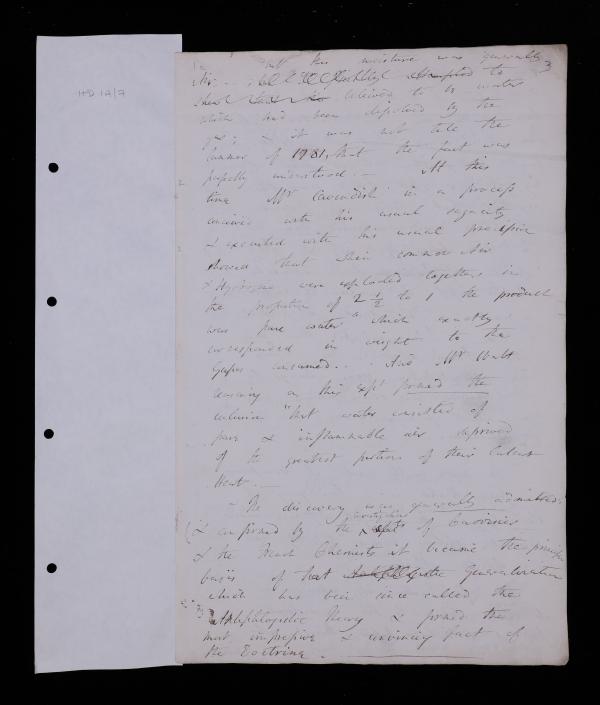 HD 12/7
3
but this moisture was generally
believed to be water
which had been deposited by the
gas; & it was not till the
summer of 1781, that the fact was
perfectly understood. — At this
time Mr Cavendish in a process
conceived with his usual sagacity
& executed with his usual precision
showed that when common Air
& Hydrogene were exploded together in
the proportion of 2 ½ to 1 the product
was pure water which exactly
corresponded in weight to the
Gases consumed. . And Mr Watt
reasoning on this Expt formed the
conclusion "that water consisted of
pure & inflammable air deprived
of the greatest portion of their latent
Heat. —
— The discovery was generally admitted;
& confirmed by the investigation of Lavoisier
& the French Chemists it became the principal
basis of that Generalization
which has been since called the
Antiphlogistic theory & formed the
most impressive & convincing part of
the Doctrine. —